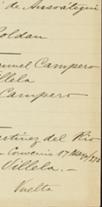 de Ansoátigui
Roldan
Manuel Campero
Villela
Campero
Martinez del Rio
Convenio 17 Mayo
Villela.
Vuelta